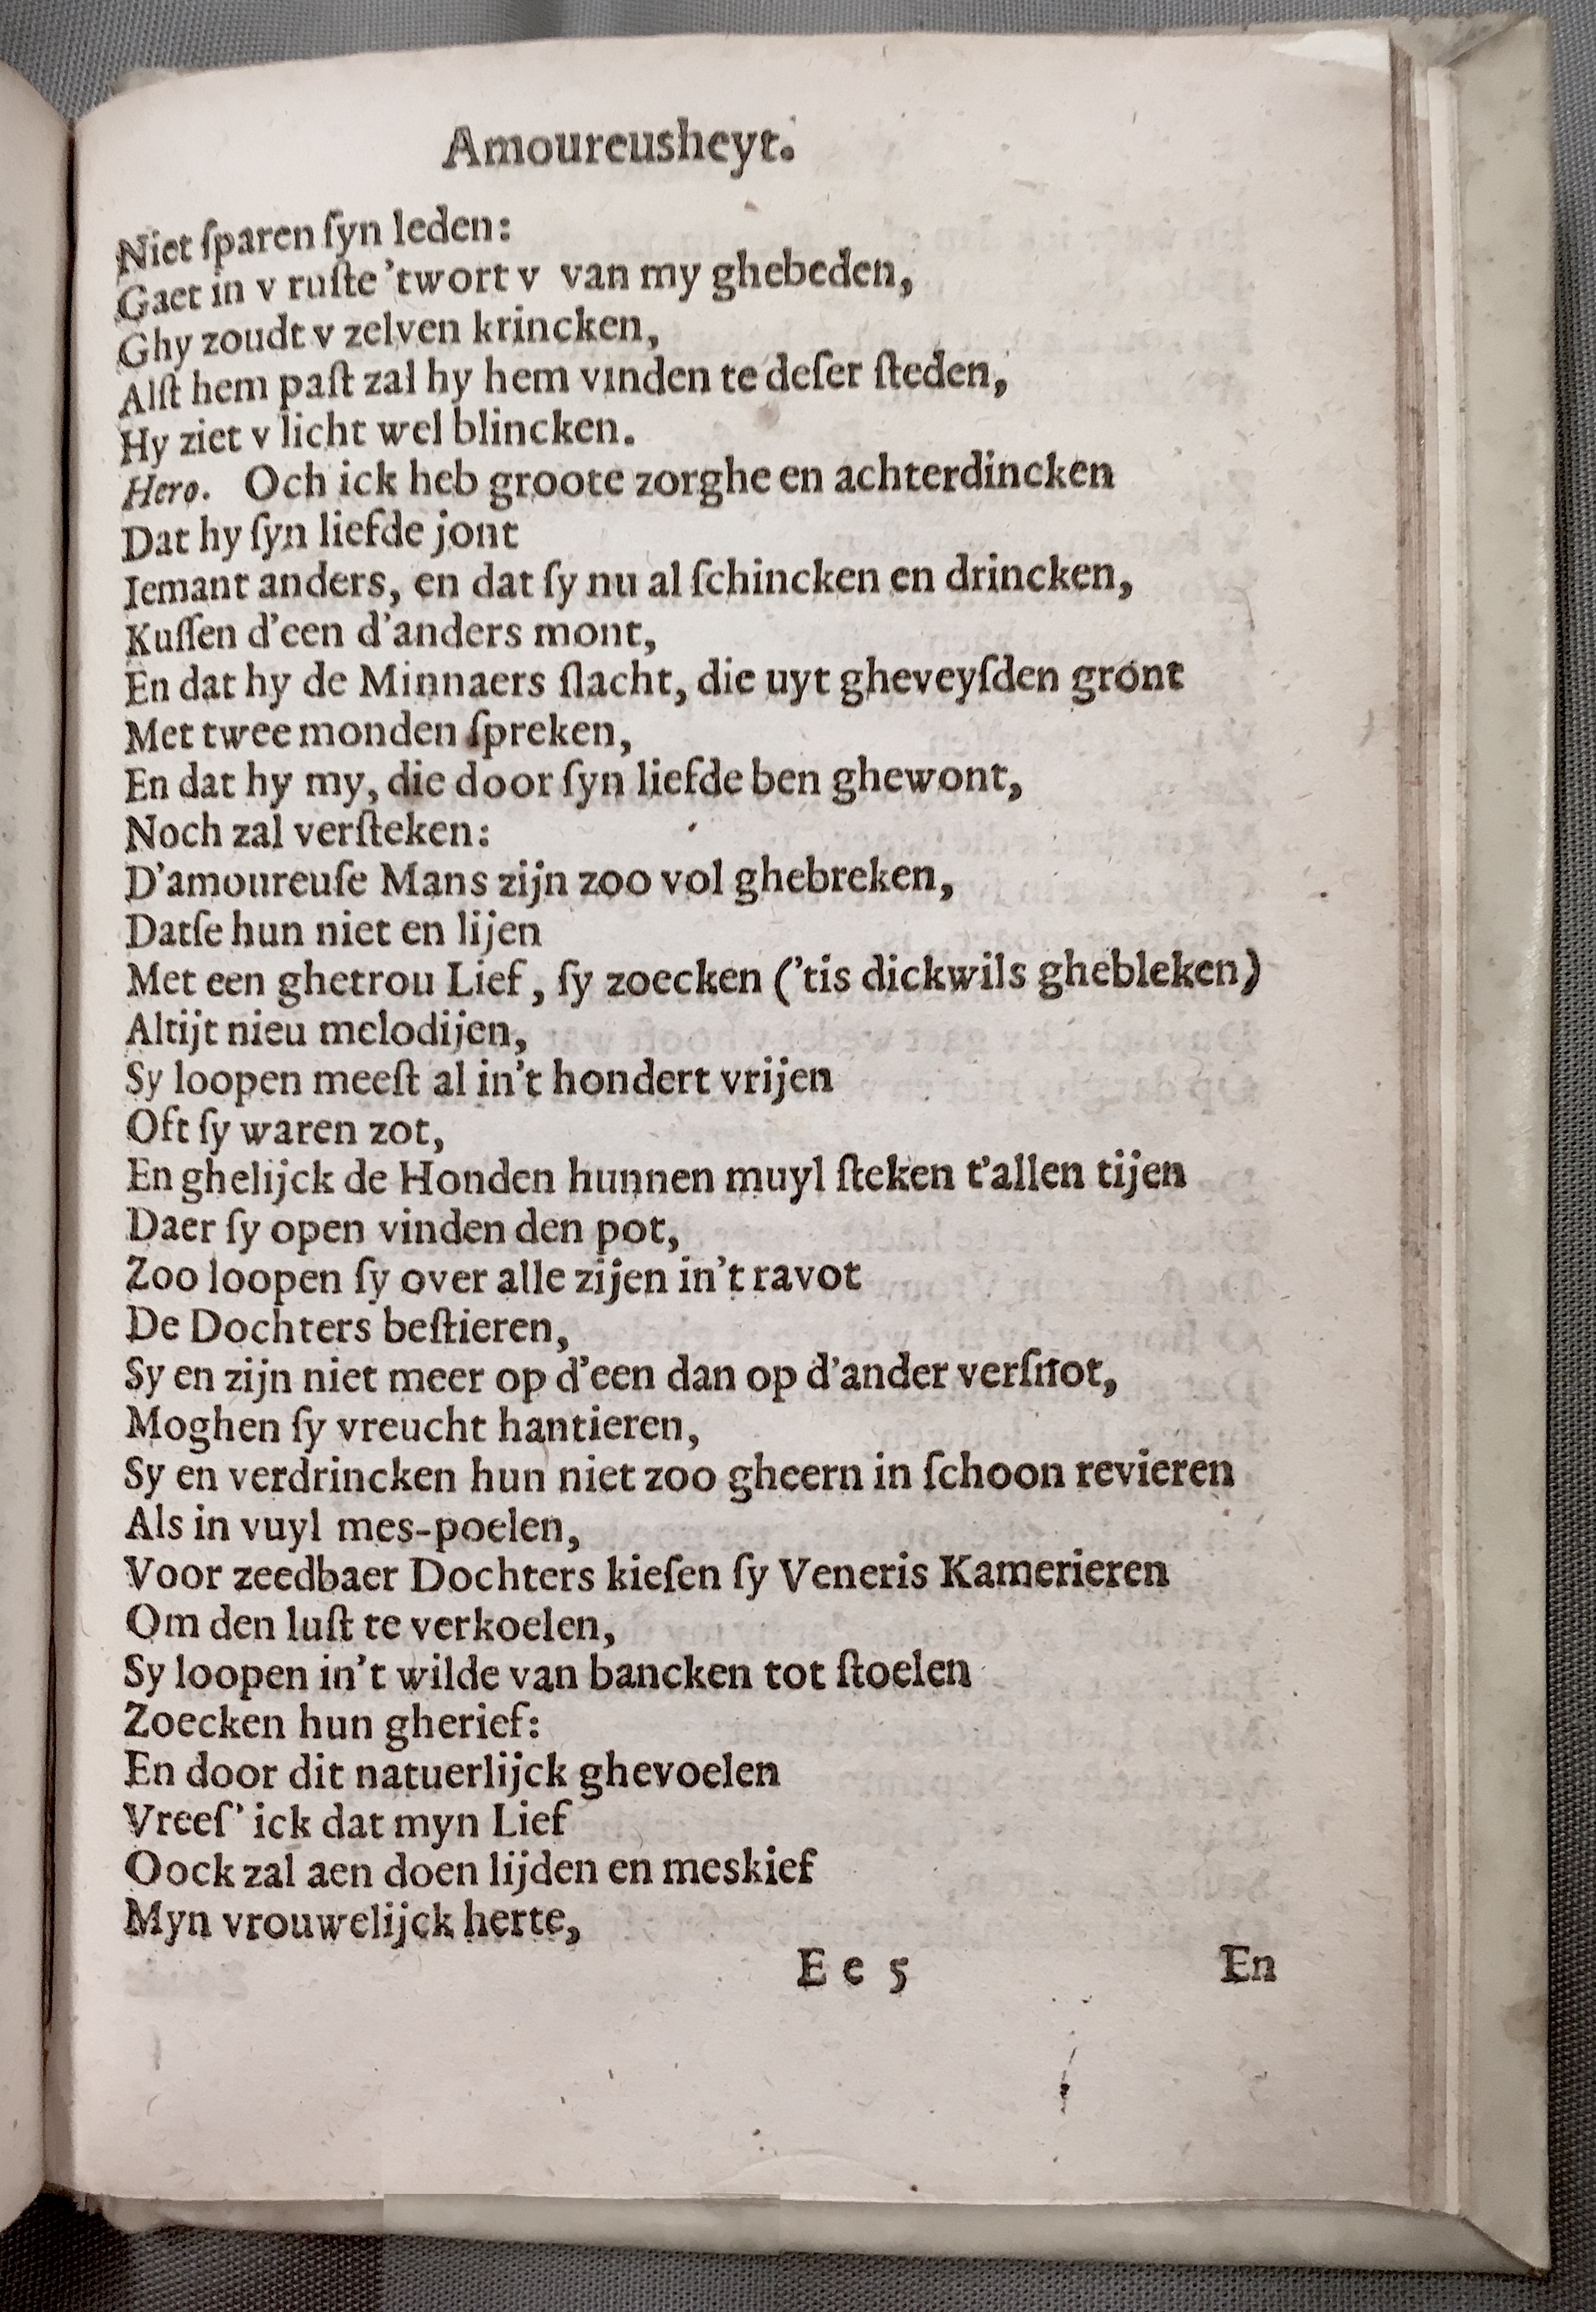 Amoureusheyt.
Niet ſparen ſyn leden:
Gaet in v ruſte 'twort v van my ghebeden,
Ghy zoudt v zelven krincken,
Alſt hem paſt zal hy hem vinden te deſer ſteden,
Hy ziet v licht wel blincken.
Hero. Och ick heb groote zorghe en achterdincken
Dat hy ſyn liefde jont
Iemant anders, en dat ſy nu al ſchincken en drincken,
Kuſſen d'een d'anders mont,
En dat hy de Minnaers ſlacht, die uyt gheveyſden gront
Met twee monden ſpreken,
En dat hy my, die door ſyn liefde ben ghewont,
Noch zal verſteken:
D'amoureuſe Mans zijn zoo vol ghebreken,
Datſe hun niet en lijen
Met een ghetrou Lief, ſy zoecken ('tis dickwils ghebleken)
Altijt nieu melodijen,
Sy loopen meeſt al in't hondert vrijen
Oft ſy waren zot,
En ghelijck de Honden hunnen muyl ſteken t'allen tijen
Daer ſy open vinden den pot,
Zoo loopen ſy over alle zijen in't ravot
De Dochters beſtieren,
Sy en zijn niet meer op d'een dan op d'ander verſnot,
Moghen ſy vreucht hantieren,
Sy en verdrincken hun niet zoo gheern in ſchoon revieren
Als in vuyl mes-poelen,
Voor zeedbaer Dochters kieſen ſy Veneris Kamerieren
Om den luſt te verkoelen,
Sy loopen in't wilde van bancken tot ſtoelen
Zoecken hun gherief:
En door dit natuerlijck ghevoelen
Vreeſ' ick dat myn Lief
Oock zal aen doen lijden en meskief
Myn vrouwelijck herte,
E e 5 En